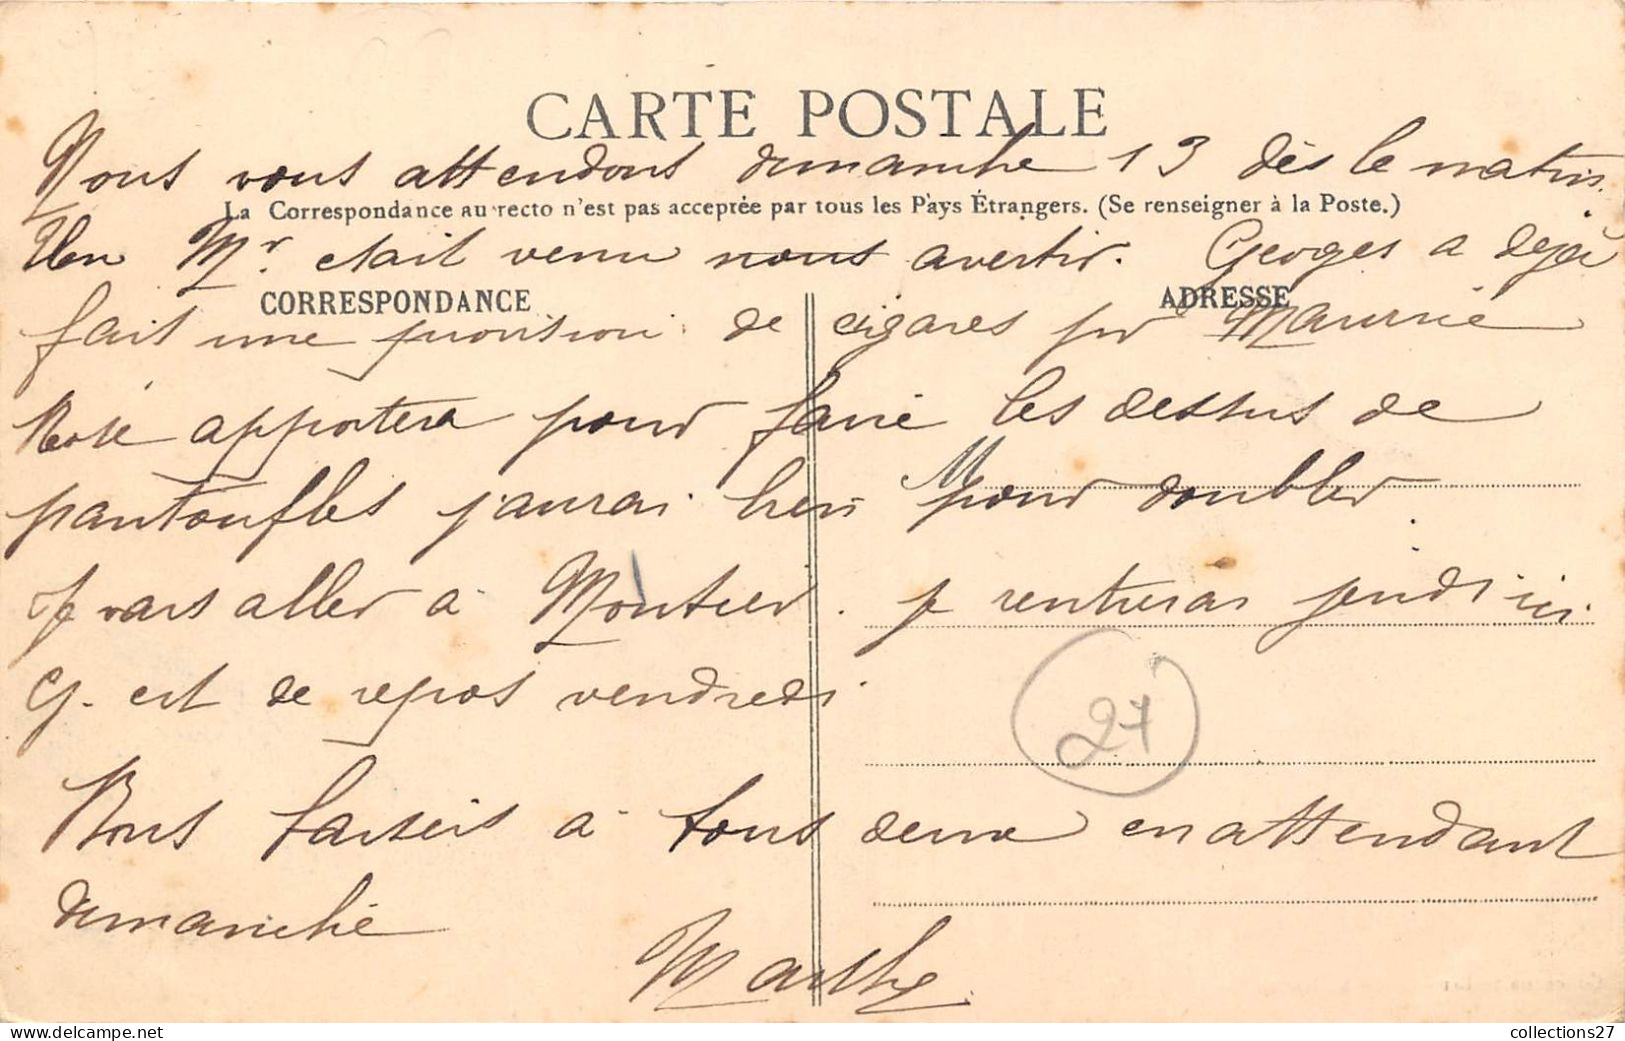 CARTE POSTALE
Nous vous attendons dimanche 13 dès le matin.
La Correspondance au recto n'est pas acceptée par tous les Pays Étrangers. (Se renseigner à la Poste.)
Un Mr. etait venu nous avertir. Georges a dejà
CORRESPONDANCE ADRESSE
fait une provision de cigares pr Maurice
Rose apportera pour faire les dessus de
pantoufles j'aurai bien pour doubler.
Je vais aller à Montier. je rentrerai jeudi ici
G. est de repos vendredi
27
Bons baisers à tous deux en attendant
dimanche
Marthe
collections27